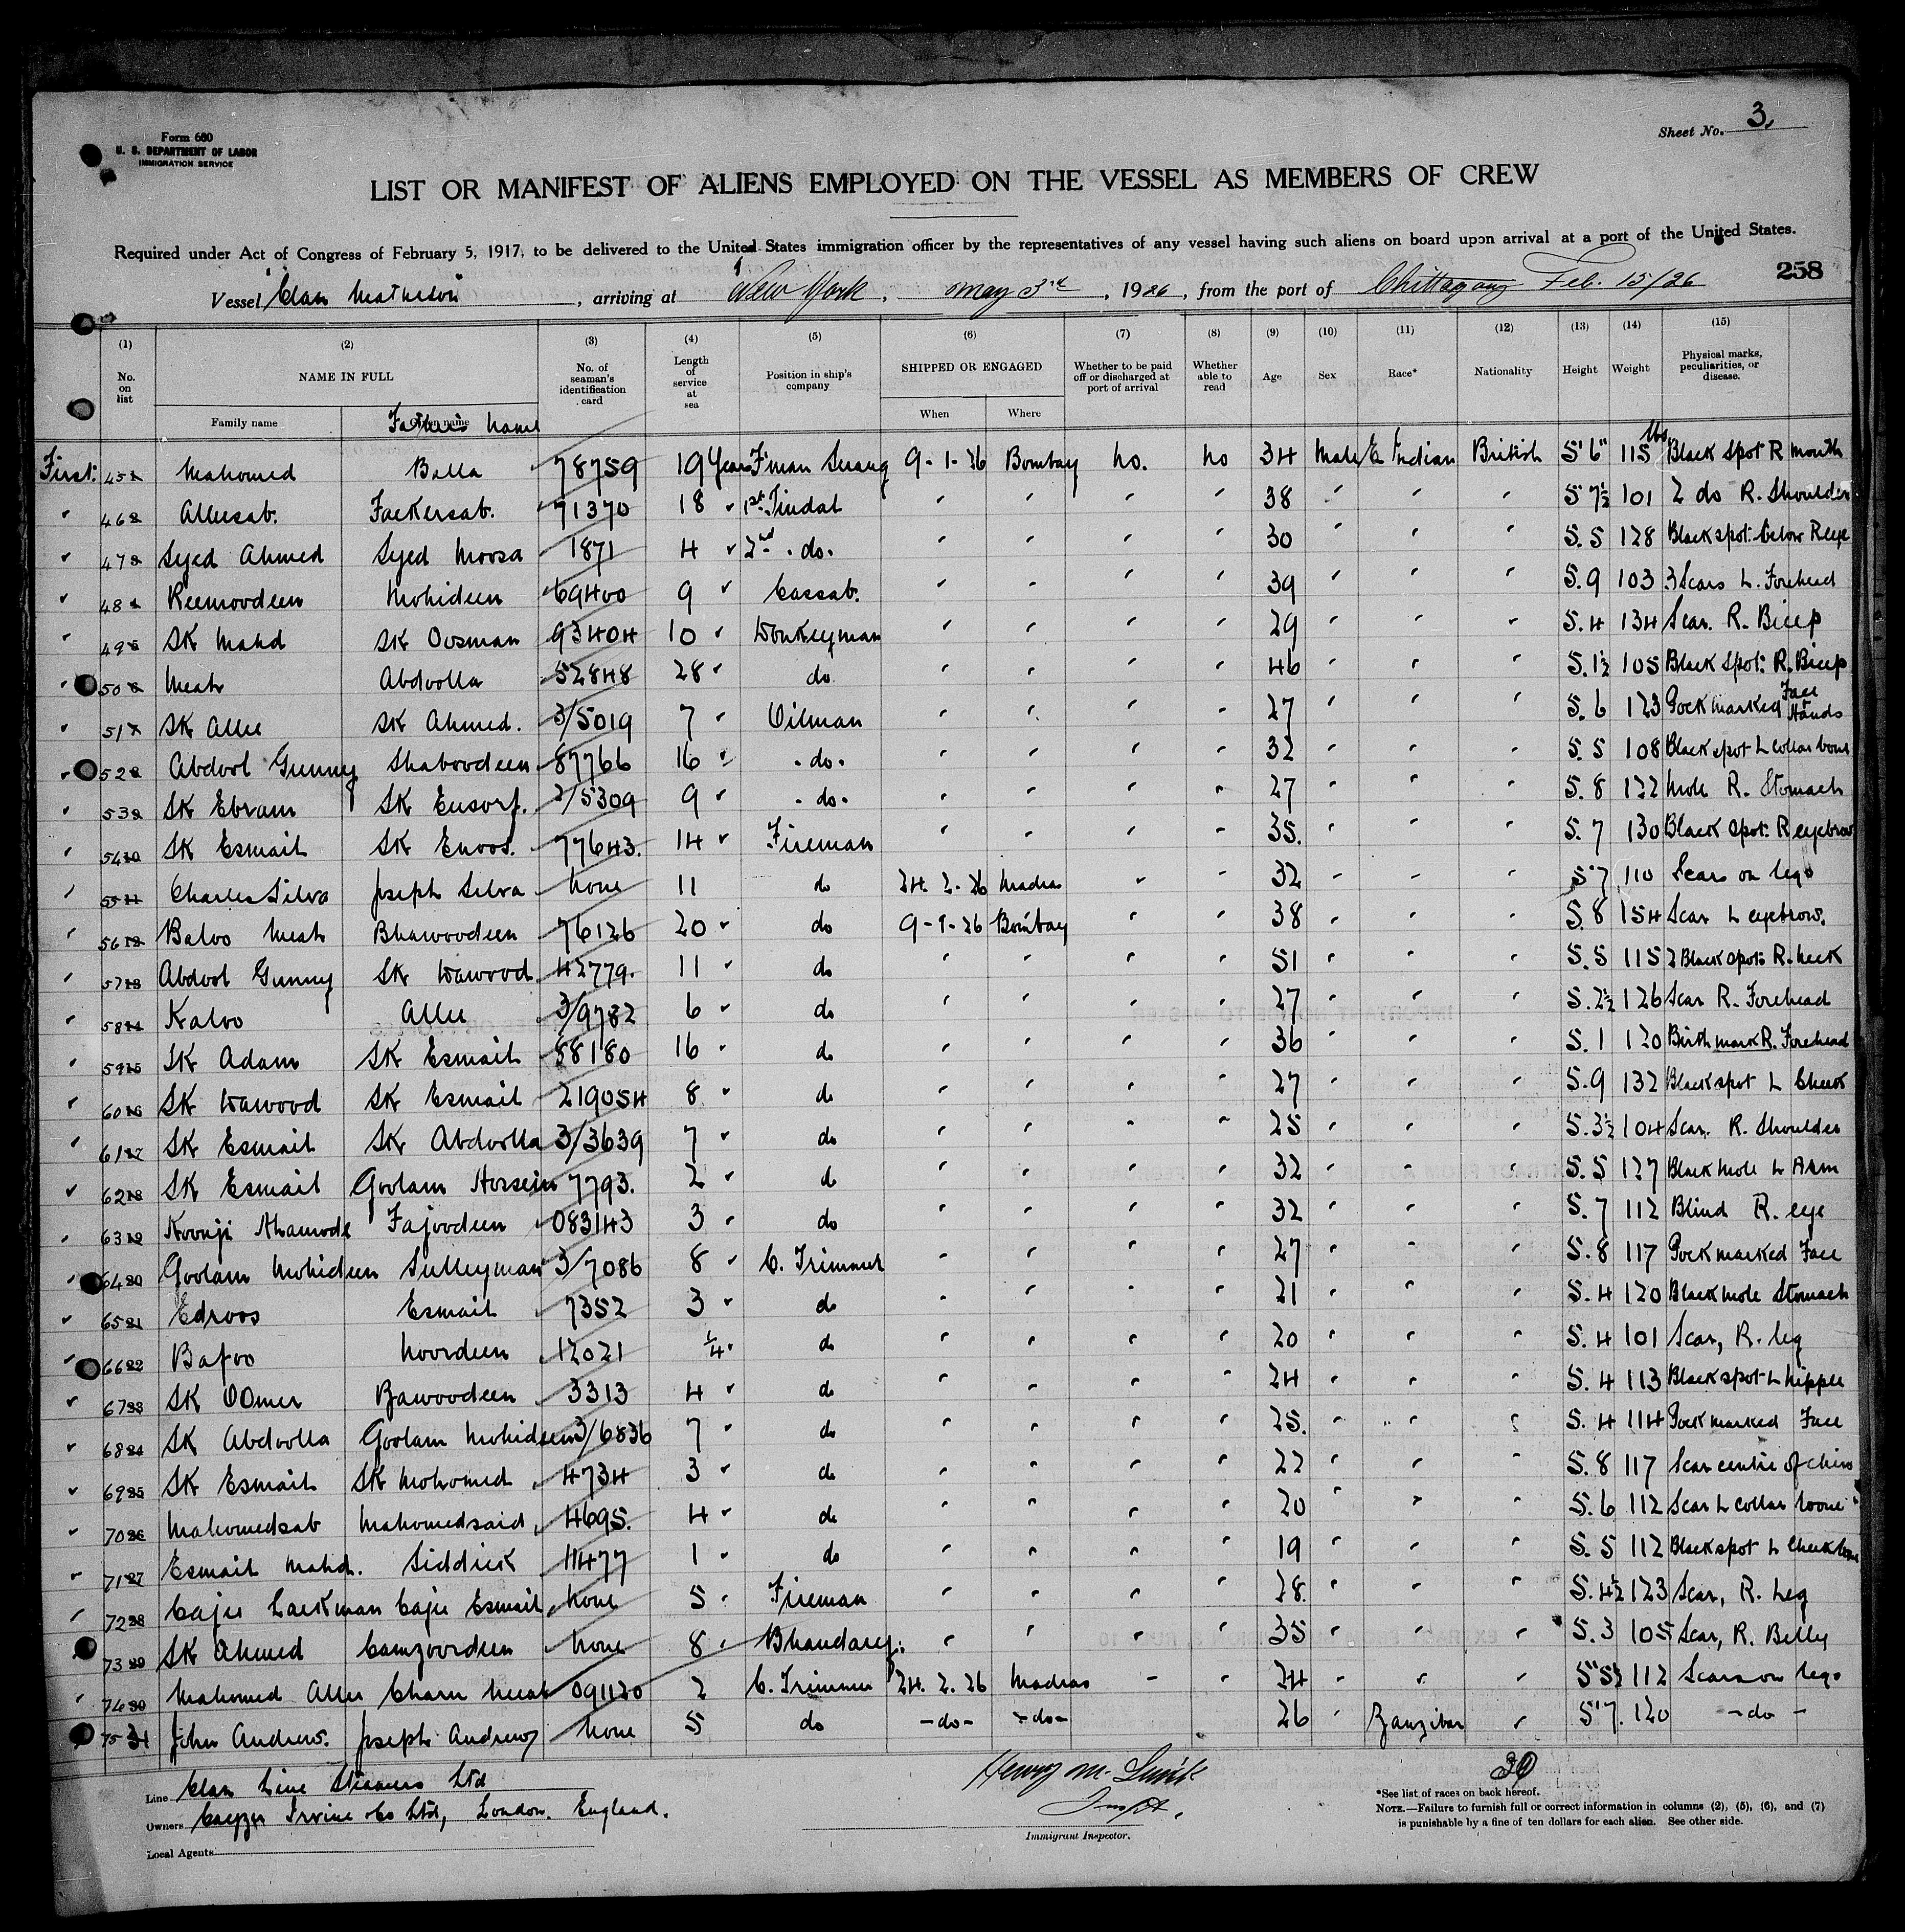 Sheet No. 3.
Form 680
U. S. DEPARTMENT OF LABOR
IMMIGRATION SERVICE
LIST OR MANIFEST OF ALIENS EMPLOYED ON THE VESSEL AS MEMBERS OF CREW
Required under Act of Congress of February 5, 1917, to be delivered to the United States immigration officer by the representatives of any vessel having such aliens on board upon arrival at a port of the United States.
258
Vessel "Clan Matheson", arriving at New York, May 3rd, 1926, from the port of Chittagong Feb. 15/26
(1) (2) (3) (4) (5) (6) (7) (8) (9) (10) (11) (12) (13) (14) (15)
No. on list NAME IN FULL No. of seaman's identification card Length of service at sea Position in ship's company SHIPPED OR ENGAGED Whether to be paid off or discharged at port of arrival Whether able to read Age Sex Race* Nationality Height Weight Physical marks, peculiarities, or disease.
Family name Father's Name When Where
First 45 Mahomed Balla 78759 19 Years F'man Serang 9-1-26 Bombay no. no 34 Male E Indian British 5'6" 115 lbs Black Spot R mouth
46 Alleesab. Fackersab. 71370 18 " 1st Tindal " " " " 38 " " " 5 7½ 101 2 do R. Shoulder
47 Syed Ahmed Syed Moosa 1871 4 " 2nd . do. " " " " 30 " " " 5.5 128 Black spot below R eye
48 Reemoodeen Mohideen 69400 9 " Cassab. " " " " 39 " " " 5.9 103 3 Scars L. Forehead
49 SK Mahd SK Oosman 93404 10 " Donkeyman " " " " 29 " " " 5.4 134 Scar. R. Bicep
50 Meah Abdoolla 52848 28 " do " " " " 46 " " " 5.1½ 105 Black Spot R. Bicep
51 SK Allee SK Ahmed. 3/5019 7 " Oilman " " " " 27 " " " 5.6 123 Pock marked Face + Hands
52 Abdool Gunny Shaboodeen 87766 16 " . do. " " " " 32 " " " 5.5 108 Black spot L collar bone
53 SK Ebram SK Eusoof. 2/5309 9 " . do. " " " " 27 " " " 5.8 122 Mole R. Stomach
54 SK Esmail SK Enoos. 77643. 14 " Fireman " " " " 35. " " " 5.7 130 Black Spot R eyebrow
55 Charles Silva Joseph Silva None 11 do 24.2.26 Madras " " 32 " " " 5'7 110 Scars on legs
56 Baloo Meah Bhawoodeen 76126 20 " do 9-1-26 Bombay " " 38 " " " 5.8 154 Scar L eyebrow.
57 Abdool Gunny SK Dawood 42779. 11 " do " " " " 51 " " " 5.5 115 2 Black spots R. neck
58 Kaloo Allee 3/9782 6 " do " " " " 27 " " " 5.2½ 126 Scar R. Forehead
59 SK Adam SK Esmail 88180 16 " do " " " " 36 " " " 5.1 120 Birth mark R. Forehead
60 SK Dawood SK Esmail 219054 8 " do " " " " 27 " " " 5.9 132 Black spot L Cheek
61 SK Esmail SK Abdoolla 3/3639 7 " do " " " " 25 " " " 5.3½ 104 Scar. R. Shoulder
62 SK Esmail Goolam Hossein 7793. 2 " do " " " " 32 " " " 5.5 127 Black Mole L Arm
63 Koonji Fajoodeen 083143 3 " do " " " " 32 " " " 5.7 112 Blind R. eye
64 Goolam Mohideen Sulleyman 3/7086 8 " C. Trimmer " " " " 27 " " " 5.8 117 Pock marked Face
65 Edroos Esmail 7352 3 " do " " " " 21 " " " 5.4 120 Black mole Stomach
66 Bafoo Noordeen 12021 ¼ " do " " " " 20 " " " 5.4 101 Scar, R. leg
67 SK OOmer Bawoodeen 3313 4 " do " " " " 24 " " " 5.4 113 Black spot L Nipple
68 SK Abdoolla Goolam Mohideen 3/6836 7 " do " " " " 25. " " " 5.4 114 Pock marked Face
69 SK Esmail SK Mohomed 4734 3 " do " " " " 22 " " " 5.8 117 Scar centre of chin
70 Mahomedsab Mahomedsaid 4695. 4 " do " " " " 20 " " " 5.6 112 Scar L collar bone
71 Esmail Mahd. Siddick 11477 1 " do " " " " 19 " " " 5.5 112 Black spot L Cheek bone
72 Cajee Lackman Cajee Esmail None 5 " Fireman " " " " 28. " " " 5.4½ 123 Scar, R. Leg
73 SK Ahmed Camzoordeen None 8 " Bhandary. " " " " 35 " " " 5.3 105 Scar, R. Belly
74 Mahomed Allee Charu Meah 091120 2 C. Trimmer 24.2.26 Madras " " 24 " " " 5'5½ 112 Scars on legs
75 John Andrew. Joseph Andrew None 5 do -do- -do- 26 " Zanzibar " 5'7. 120 -do-
30
Line Clan Line Steamers Ltd
Owners Cayzer Irvine & Co Ltd, London. England.
Local Agents
Henry M. Smith
Inspt.
Immigrant Inspector.
*See list of races on back hereof.
NOTE.—Failure to furnish full or correct information in columns (2), (5), (6), and (7)
is punishable by a fine of ten dollars for each alien. See other side.